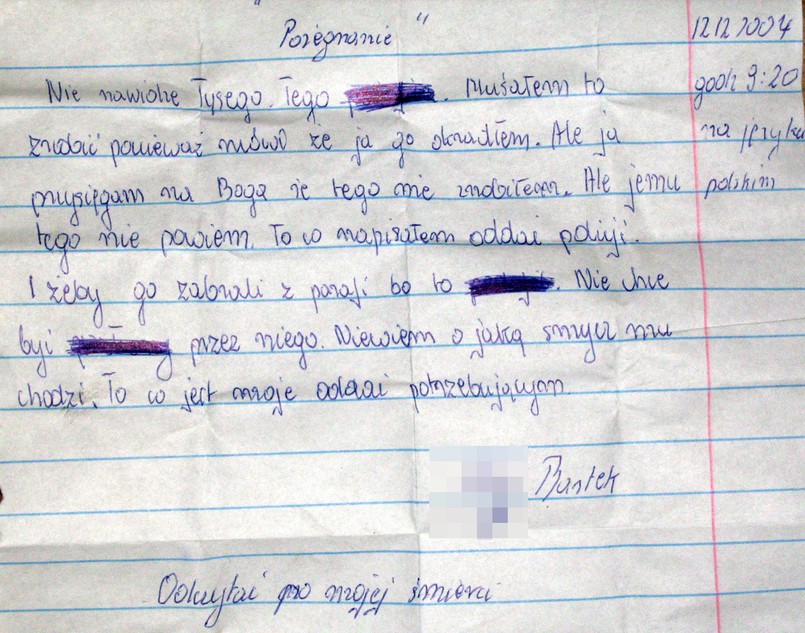 "Pożegnanie" 12 12 2004
Nie nawidze Tysego. Tego . Musałem to godz 9:20
zrobić ponieważ mówił że ja go okradłem. Ale ja na języku
przysięgam na Boga że tego nie zrobiłem. Ale jemu polskim
tego nie powiem. To co napisałem oddai policji.
I żeby go zabrali z parafi bo to . Nie chce
być przez niego. Niewiem o jaką smycz mu
chodzi. To co jest moje oddai potrzebującym.
Bartek
Odczytai po mojej śmierci